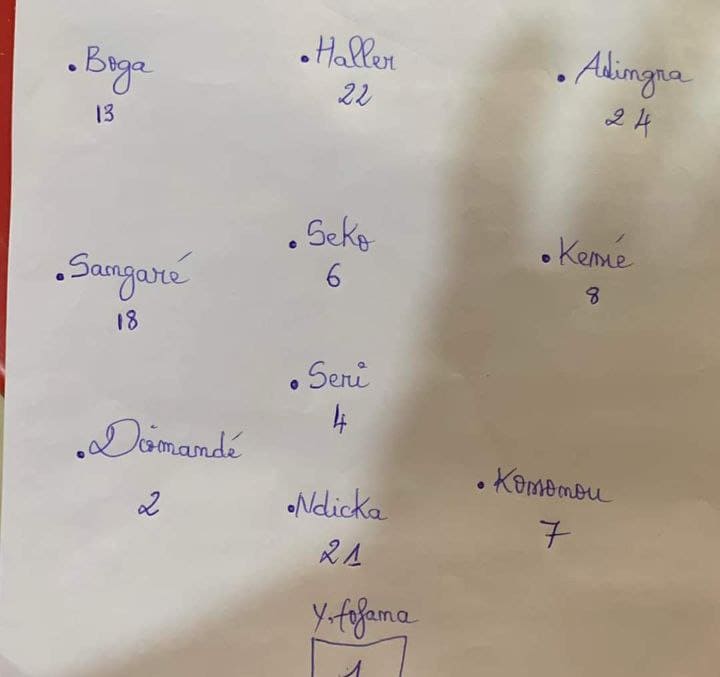 . Boga
13
. Haller
22
. Adingra
24
. Sangaré
18
. Seko
6
. Kessié
8
. Seri
4
. Diomandé
2
. Ndicka
21
. Konomou
7
Y. fofama
1